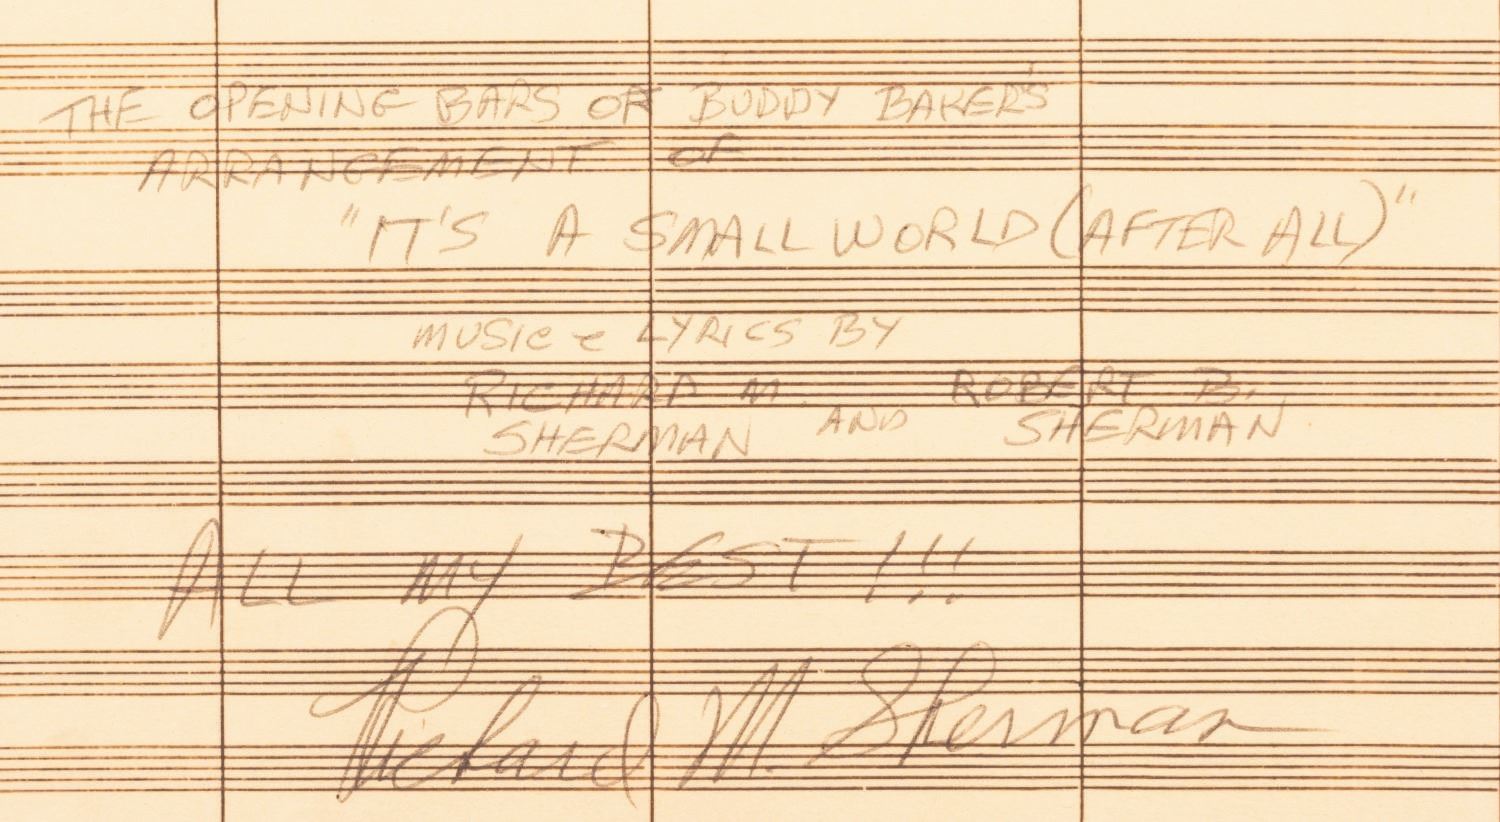 THE OPENING BARS OF BUDDY BAKER'S
ARRANGEMENT OF
"IT'S A SMALL WORLD (AFTER ALL)"
MUSIC & LYRICS BY
RICHARD M. ROBERT B.
SHERMAN AND SHERMAN
ALL MY BEST!!!
Richard M. Sherman